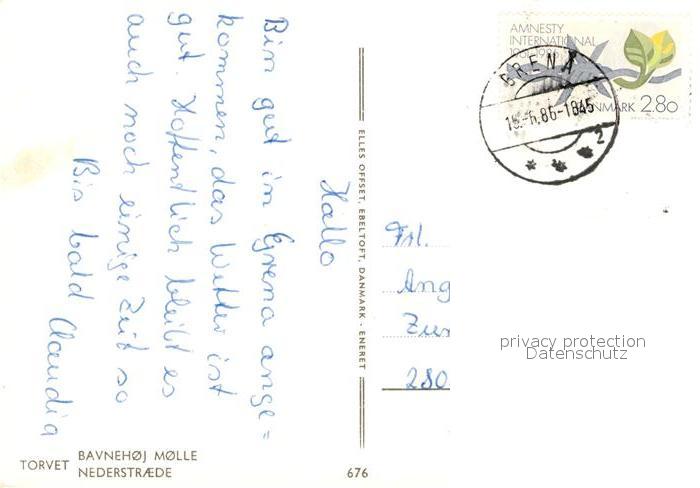 Hallo
Bin gut in Grena ange=
kommen, das Wetter ist
gut. Hoffentlich bleibt es
auch noch einige Zeit so
Bis bald Claudia
ELLES OFFSET, EBELTOFT, DANMARK - ENERET
AMNESTY
INTERNATIONAL
1961-1986
DANMARK 2.80
GRENÅ
15.-6.86-1845
2
Frl.
Ang
Zur
280
privacy protection
Datenschutz
TORVET BAVNEHØJ MØLLE
NEDERSTRÆDE
676